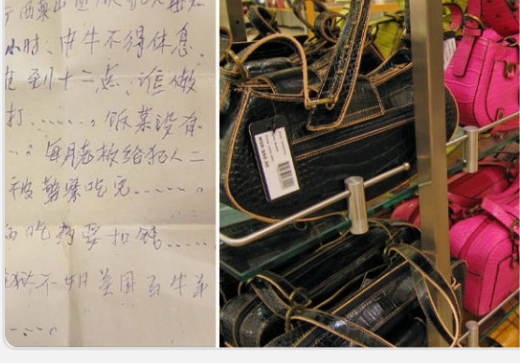 小时、中午不得休息.
到十二点、谁做
打......。饭菜没有
..。每月老板给犯人二
被警察吃完......。
病吃药要扣钱.....
狱不如美国马牛羊
....。